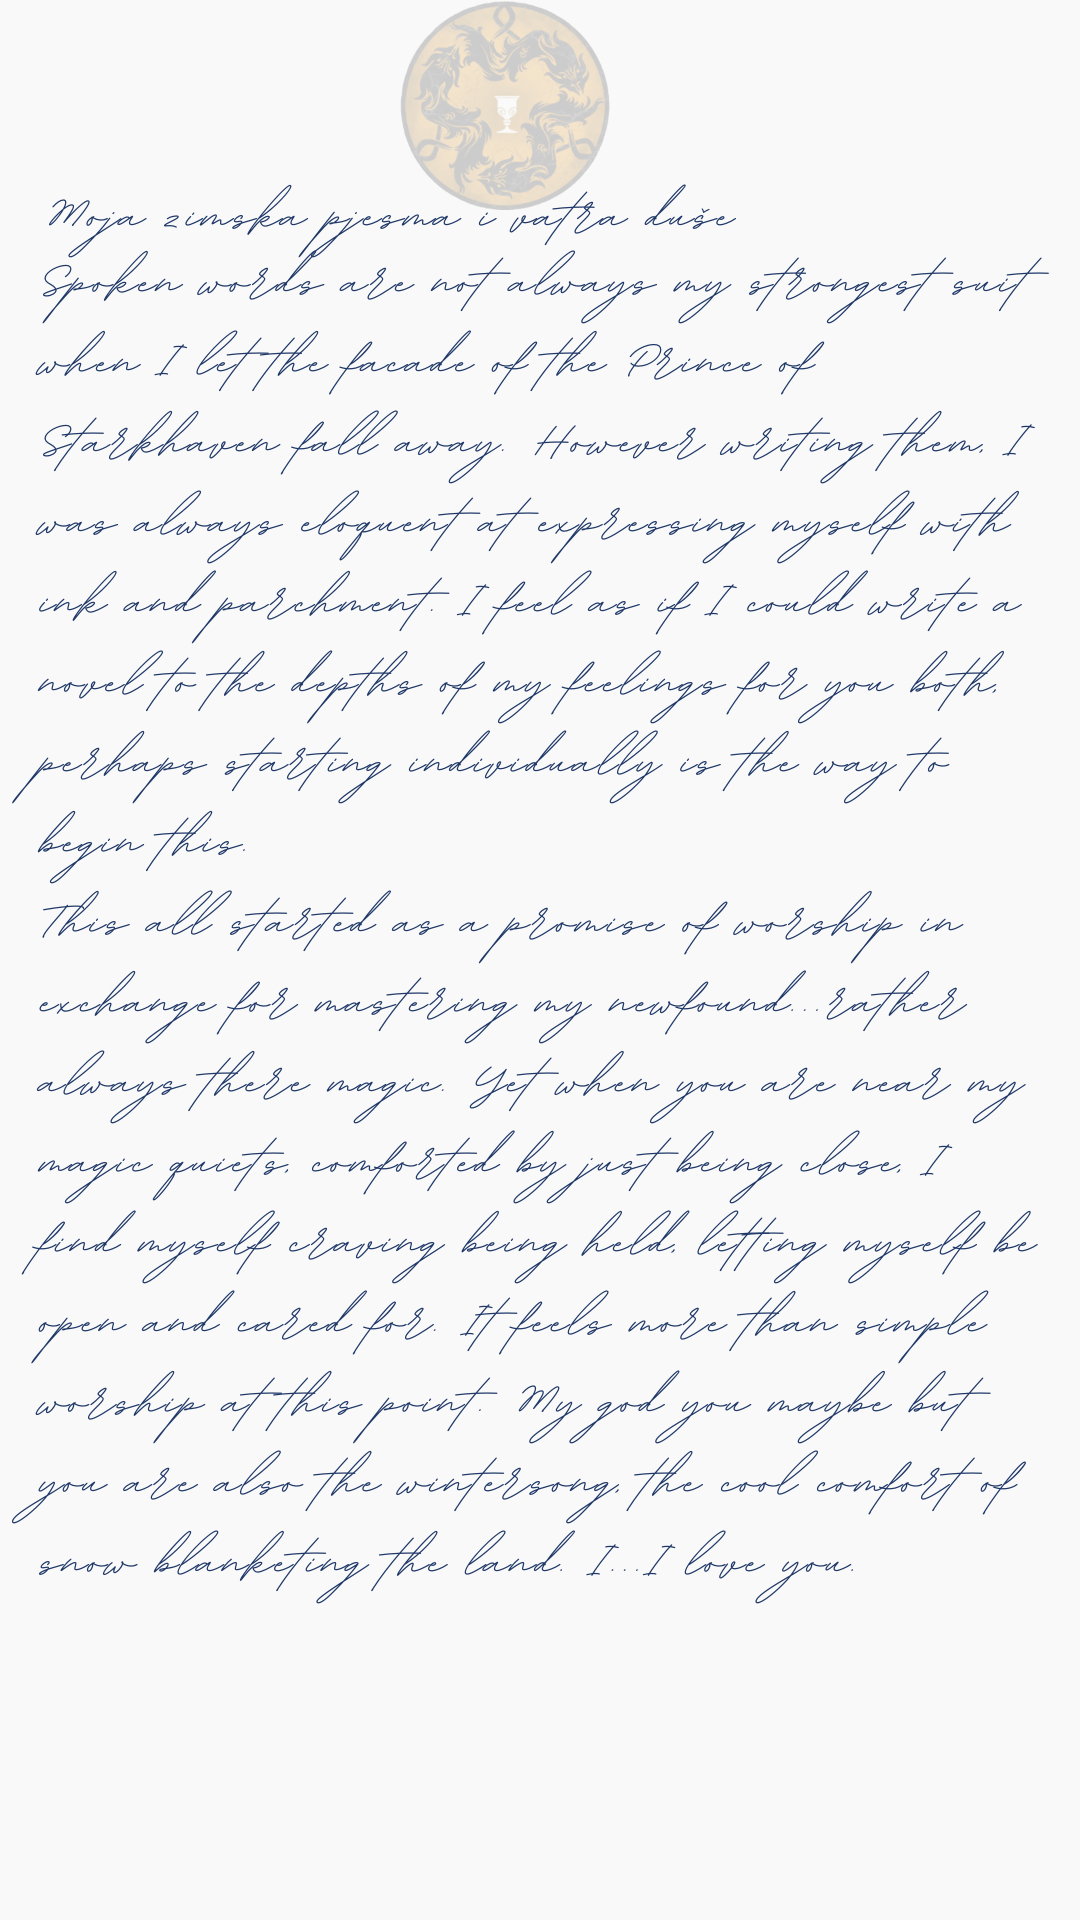 Moja zimska pjesma i vatra duše
Spoken words are not always my strongest suit
when I let the facade of the Prince of
Starkhaven fall away. However writing them, I
was always eloquent at expressing myself with
ink and parchment. I feel as if I could write a
novel to the depths of my feelings for you both,
perhaps starting individually is the way to
begin this.
This all started as a promise of worship in
exchange for mastering my newfound...rather
always there magic. Yet when you are near my
magic quiets, comforted by just being close, I
find myself craving being held, letting myself be
open and cared for. It feels more than simple
worship at this point. My god you maybe but
you are also the wintersong, the cool comfort of
snow blanketing the land. I...I love you.